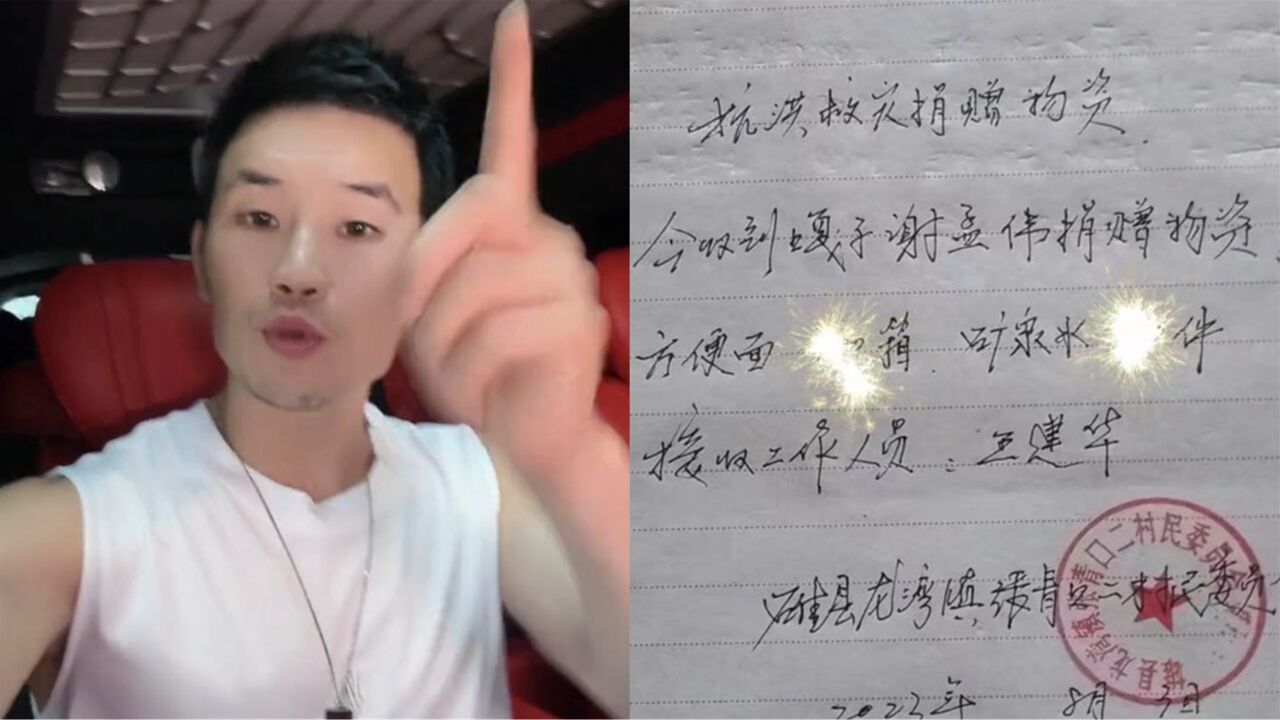 抗洪救灾捐赠物资.
今收到嘎子谢孟伟捐赠物资.
方便面 箱. 矿泉水 件
接收工作人员: 王建华
雄县龙湾镇张青口二村民委员
雄县龙湾镇张青口二村民委员
2023年 8月 3日